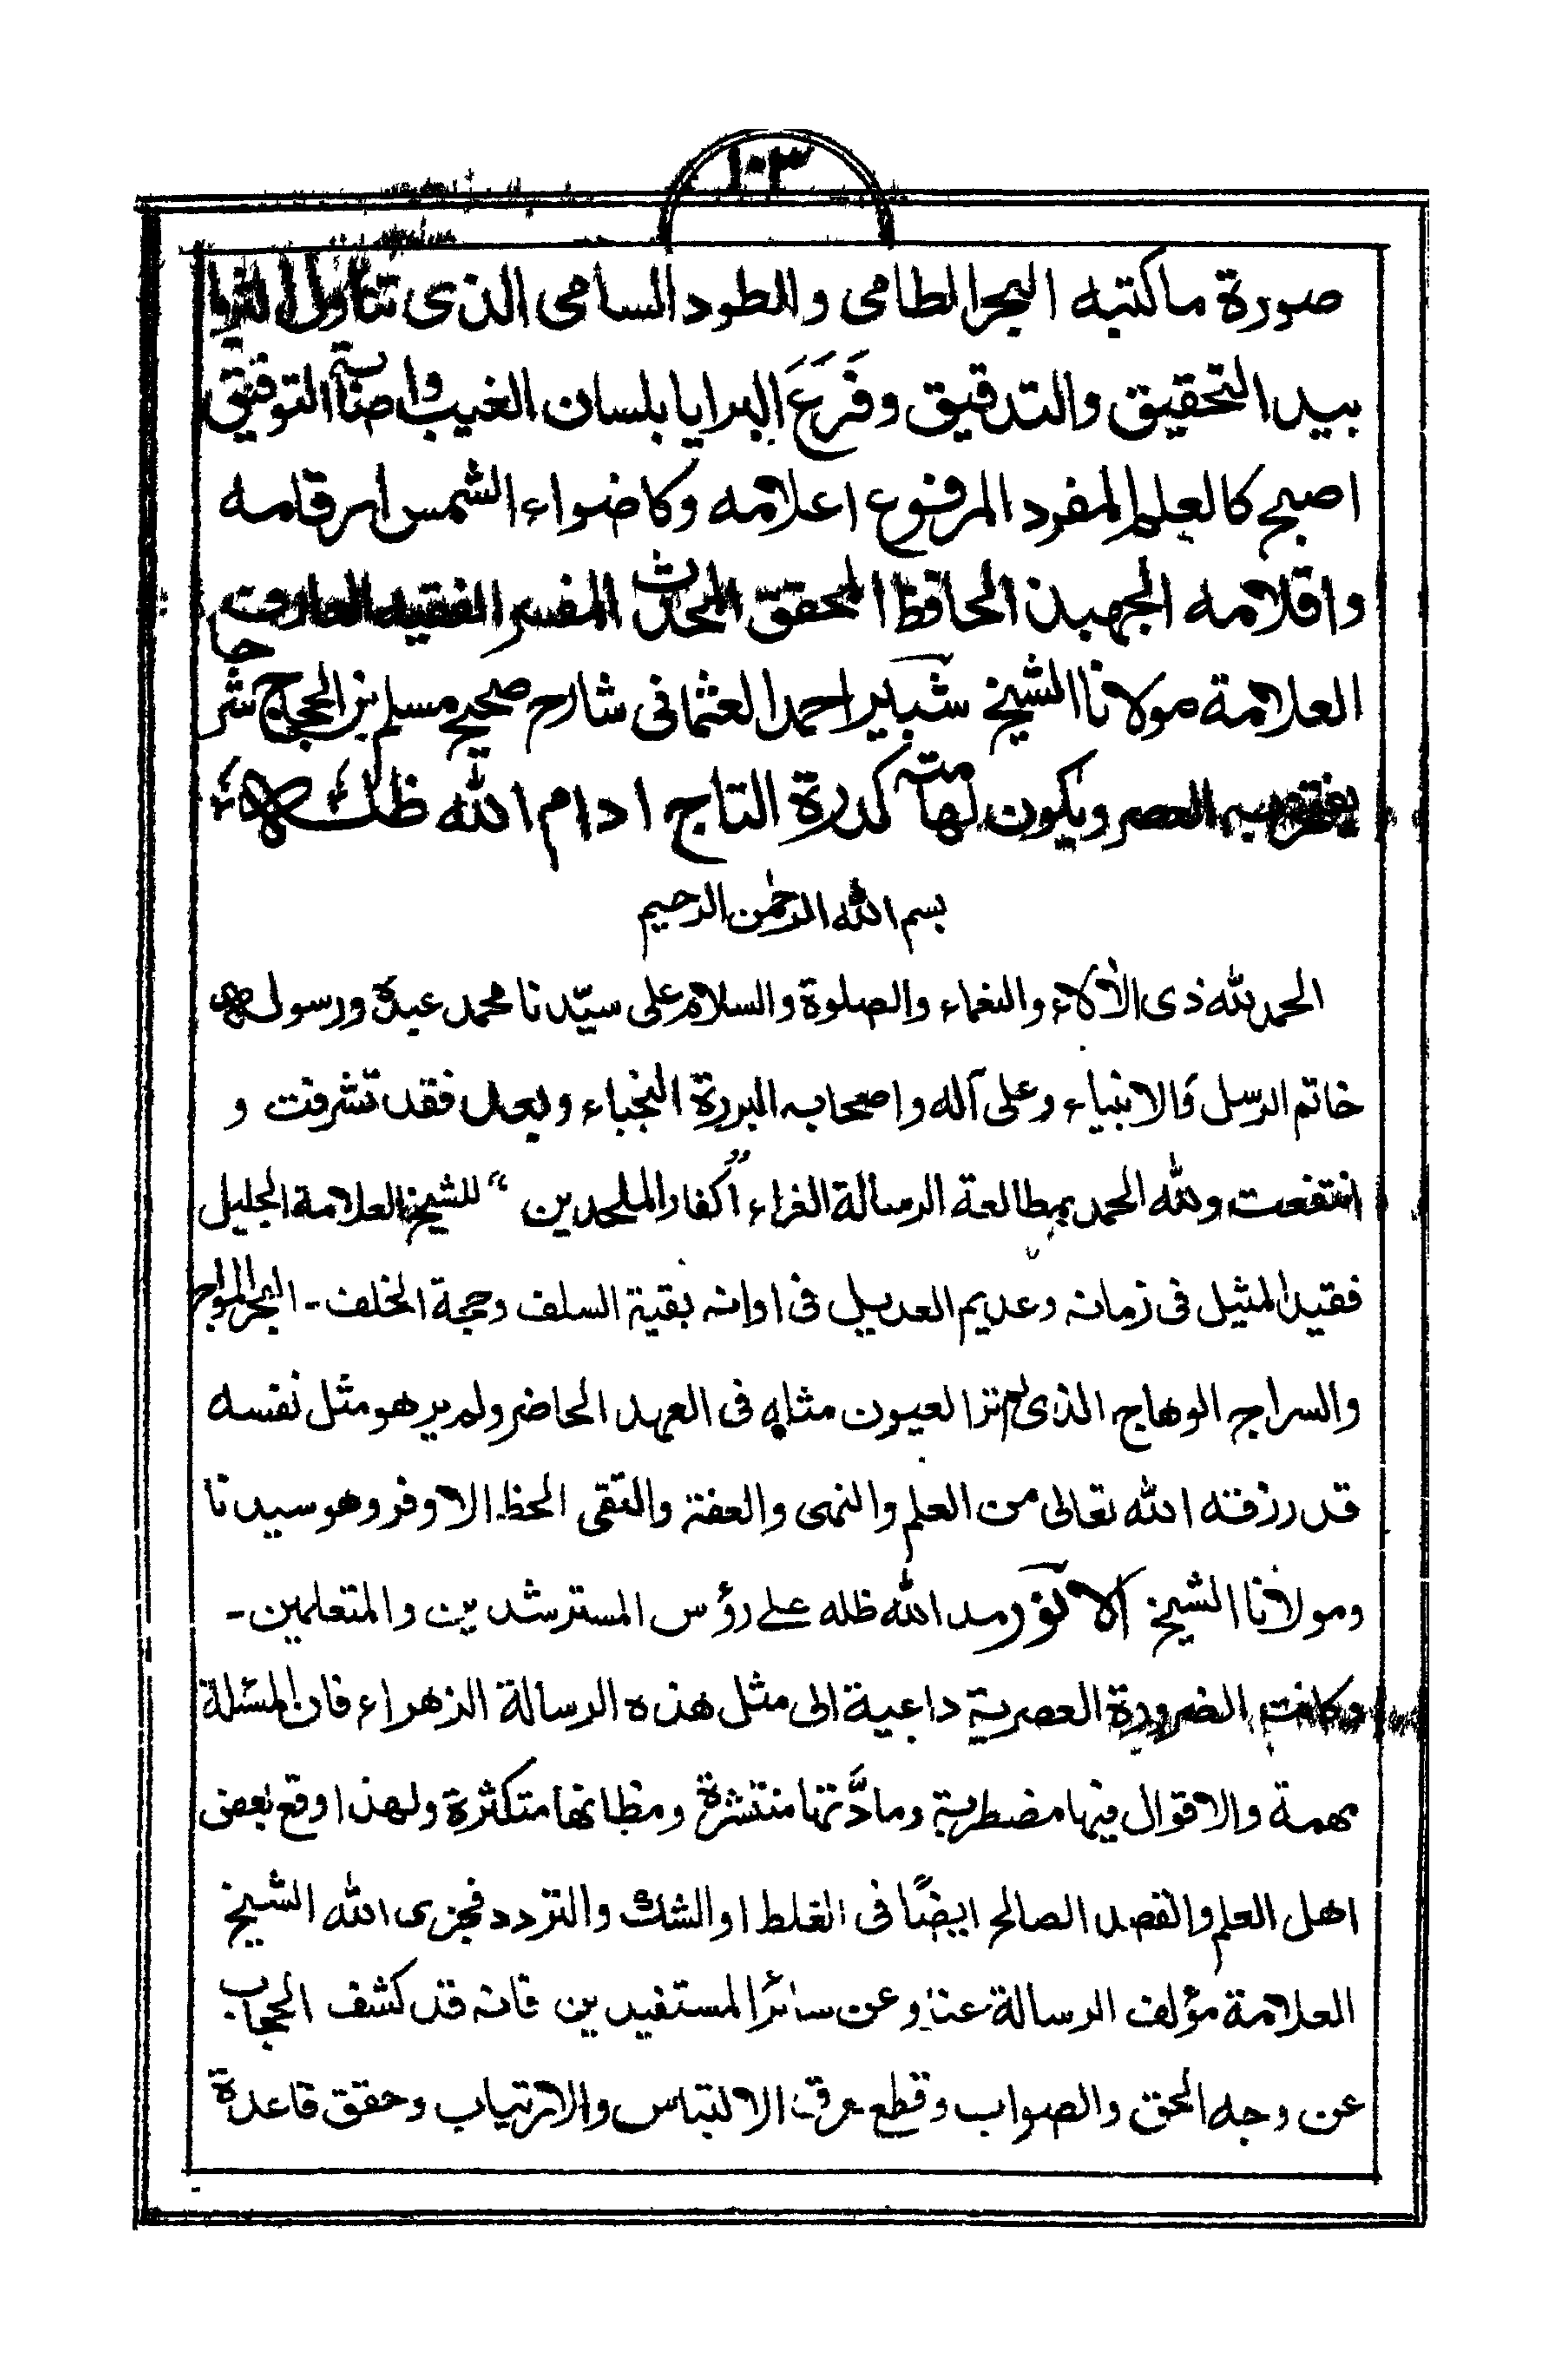 ١٠٣
صورة ماكتبه البحر الطامى والطود السامى الذى تناول الثريا
بيد التحقيق والتدقيق وفَرَعَ البرايا بلسان الغيب واصابة التوفيق
اصبح كالعلم المفرد المرفوع اعلامه وكاضواء الشمس ارقامه
واقلامه الجهبذ الحافظ المحقق المحدث المفسر الفقيه العارف
العلامة مولانا الشيخ شبير احمد العثمانى شارح صحيح مسلم بن الحجاج شرحا
يفتخر به العصر ويكون لهامته كدرة التاج ادام الله ظله
بسم الله الرحمٰن الرحيم
الحمد لله ذى الآلاء والنعماء والصلوة والسلام على سيّدنا محمد عبده ورسوله
خاتم الرسل والانبياء وعلى آله واصحابه البررة النجباء وبعد فقد تشرفت و
انتفعت ولله الحمد بمطالعة الرسالة الغراء "اكفار الملحدين" للشيخ العلامة الجليل
فقيد المثيل فى زمانه وعديم العديل فى اوانه بقية السلف وحجة الخلف - البحر المواج
والسراج الوهاج الذى لم تر العيون مثله فى العهد الحاضر ولم ير هو مثل نفسه
قد رزقه الله تعالى من العلم والنهى والعفة والتقى الحظ الاوفر وهو سيدنا
ومولانا الشيخ الانور مد الله ظله على رؤس المسترشدين والمتعلمين -
وكانت الضرورة العصرية داعية الى مثل هذه الرسالة الزهراء فان المسئلة
مهمة والاقوال فيها مضطربة ومادَّتها منتشرة ومظانها متكثرة ولهذا وقع بعض
اهل العلم والقصد الصالح ايضًا فى الغلط او الشك والتردد فجزى الله الشيخ
العلامة مؤلف الرسالة عنا وعن سائر المستفيدين فانه قد كشف الحجاب
عن وجه الحق والصواب وقطع عرق الالتباس والارتياب وحقق قاعدة